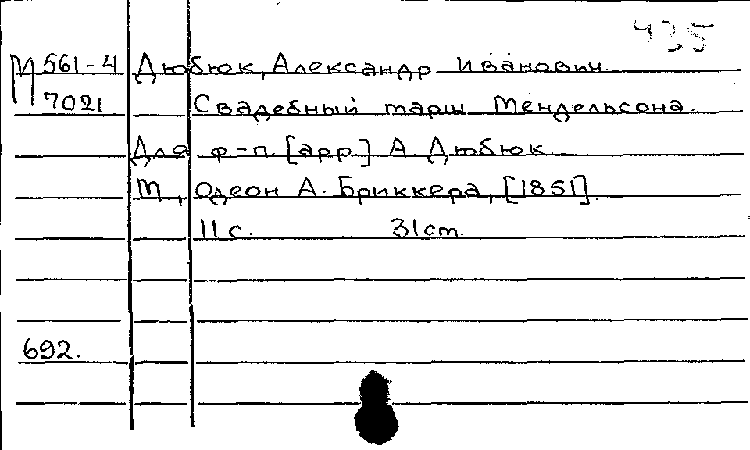 435
М 561-4 Дюбюк, Александр Иванович
7021 Свадебный марш Мендельсона.
Для ф-п. [арр] А Дюбюк
М, Одеон А. Бриккера, [1851].
11 с. 31 cm
692.